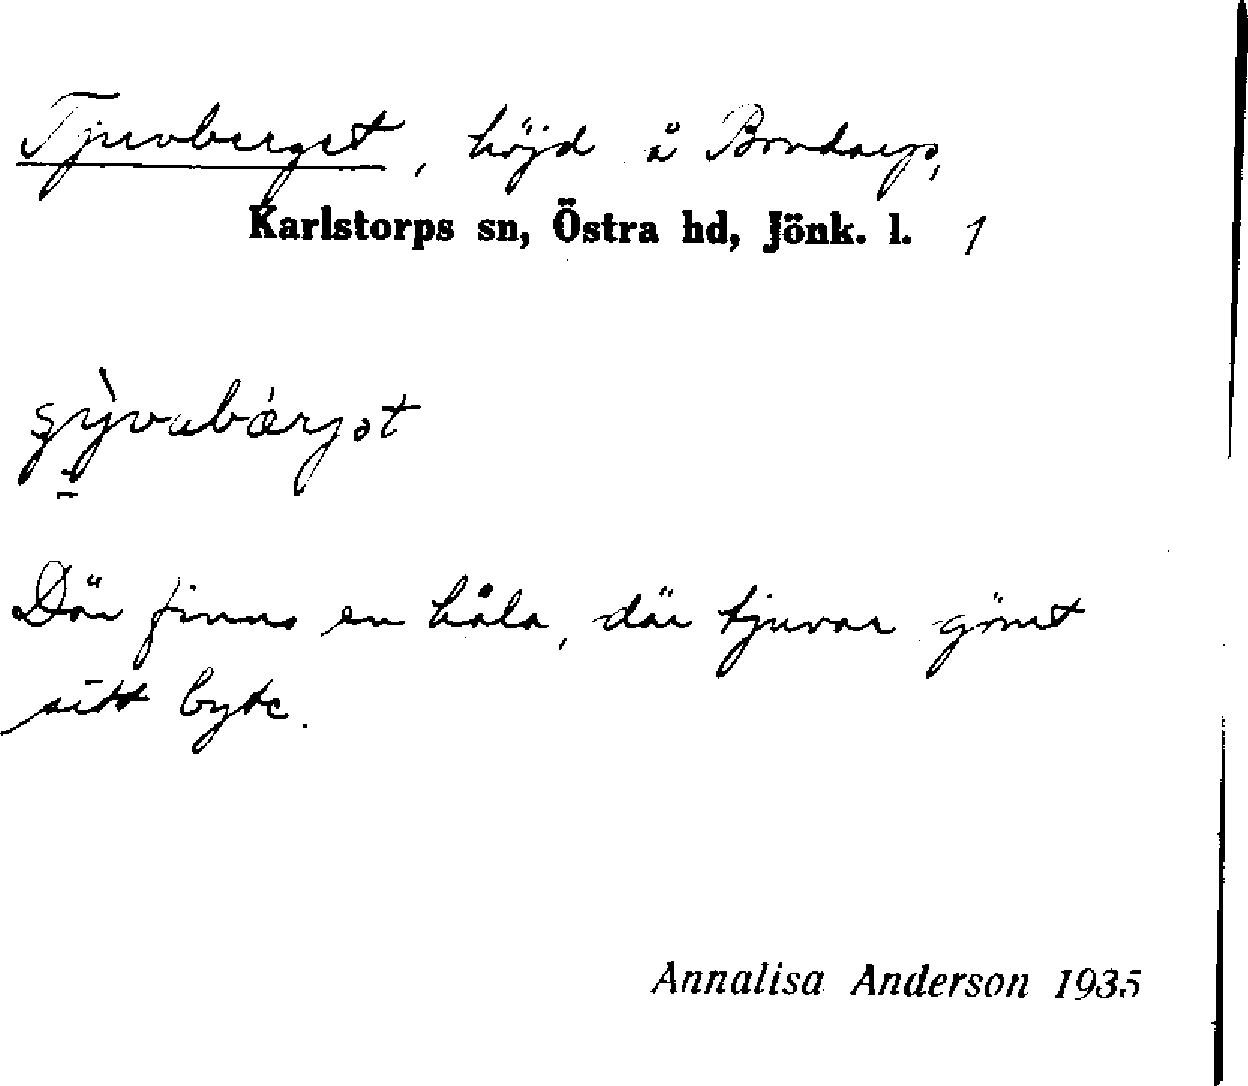 Tjuvberget, höjd å Brudarps,
Karlstorps sn, Östra hd, Jönk. l. 1
Där finns en håla, där tjuvar gömt
sitt byte.
Annalisa Anderson 1935